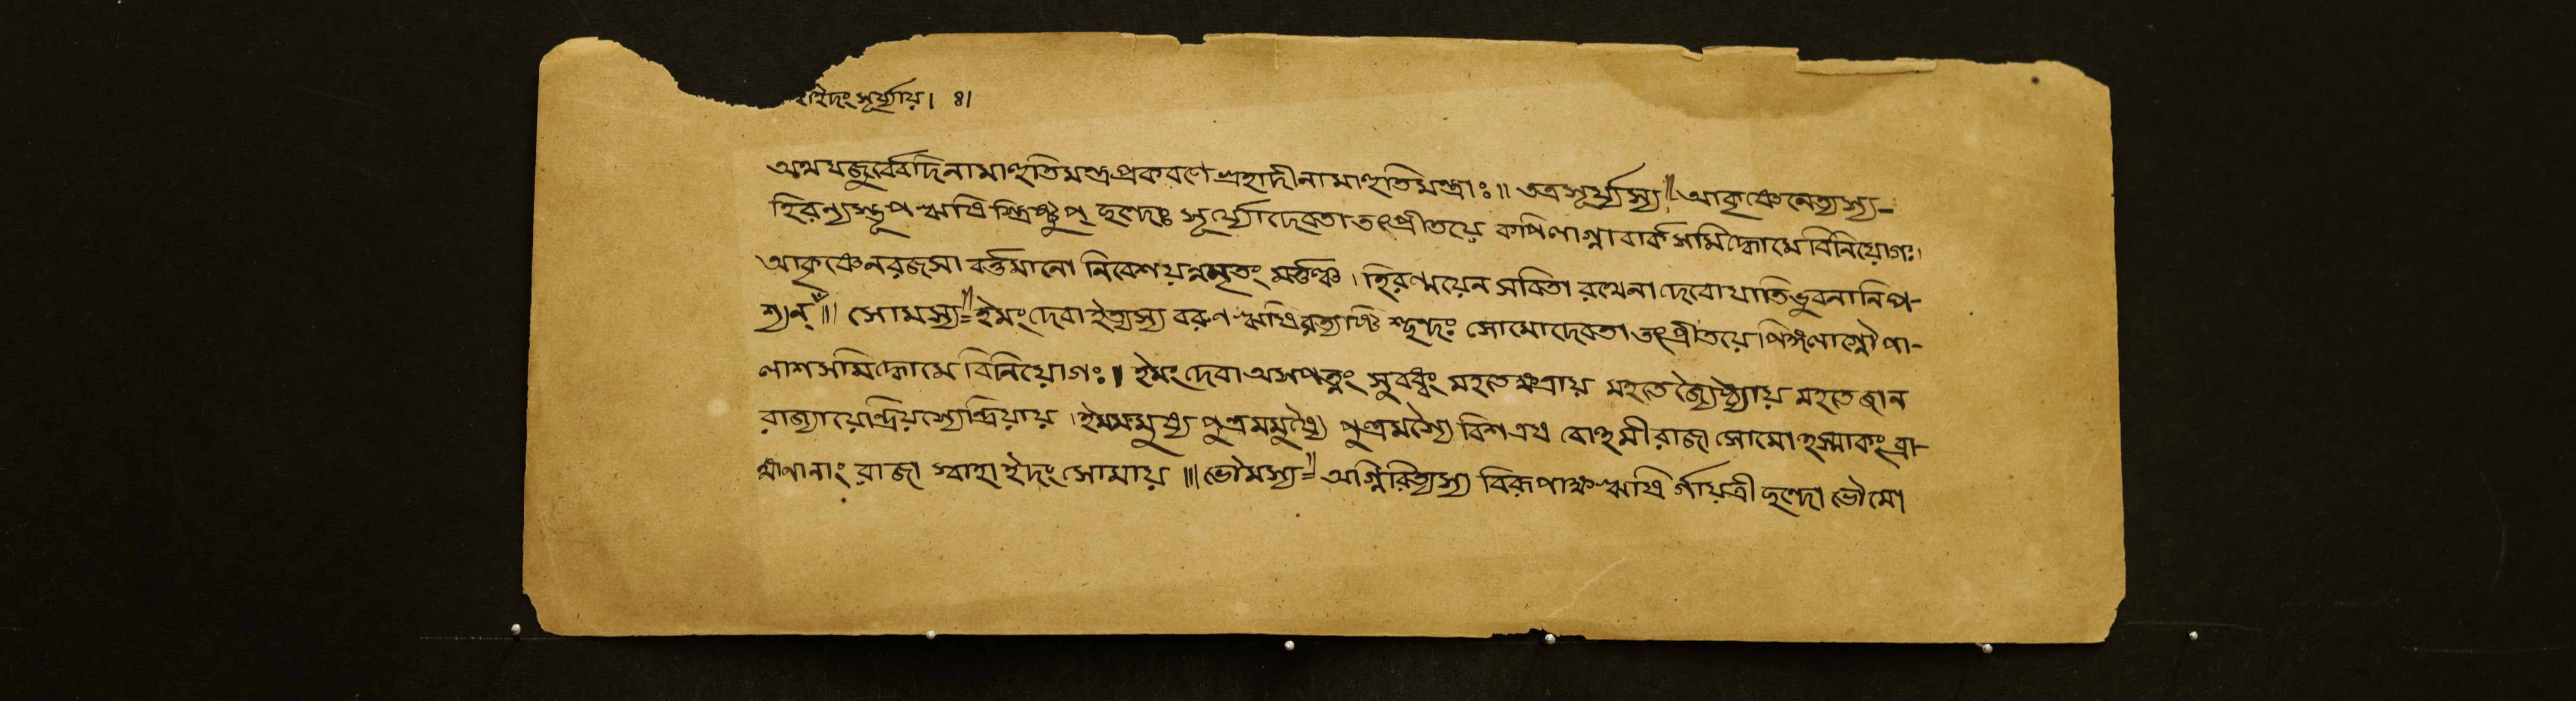 ইদং সূর্য্যায়। ৪।
অথ যজুর্ব্বেদিনামাহুতিমন্ত্রপ্রকরণে গ্রহাদীনামাহুতিমন্ত্রাঃ॥ তত্র সূর্য্যস্য॥ আকৃষ্ণেনেত্যস্য-
হিরণ্যস্তূপ ঋষি স্ত্রিষ্টুপ্ ছন্দঃ সূর্য্যোদেবতা তৎপ্রীতয়ে কপিলাগ্নাবার্কসমিদ্ধোমে বিনিয়োগঃ।
আকৃষ্ণেন রজসা বর্ত্তমানো নিবেশয়ন্নমৃতং মর্ত্তঞ্চ। হিরণ্ময়েন সবিতা রথেনা দেবো যাতি ভুবনানি প-
শ্যন্॥ সোমস্য= ইমং দেবা ইত্যস্য বরুণ ঋষিরত্যষ্টি শ্ছন্দঃ সোমোদেবতা তৎপ্রীতয়ে পিঙ্গলাগ্নৌ পা-
লাশসমিদ্ধোমে বিনিয়োগঃ। ইমং দেবা অসপত্নং সুবধ্বং মহতে ক্ষত্রায় মহতে জ্যৈষ্ঠ্যায় মহতে জান
রাজ্যায়েন্দ্রিয়স্যেন্দ্রিয়ায়। ইমমমুষ্য পুত্রমমুষ্যৈ পুত্রমস্যৈ বিশ এষ বোহমী রাজা সোমোহস্মাকং ব্রা-
হ্মণানাং রাজা স্বাহা ইদং সোমায়॥ ভৌমস্য= অগ্নিরিত্যস্য বিরূপাক্ষ ঋষি র্গায়ত্রী ছন্দো ভৌমো